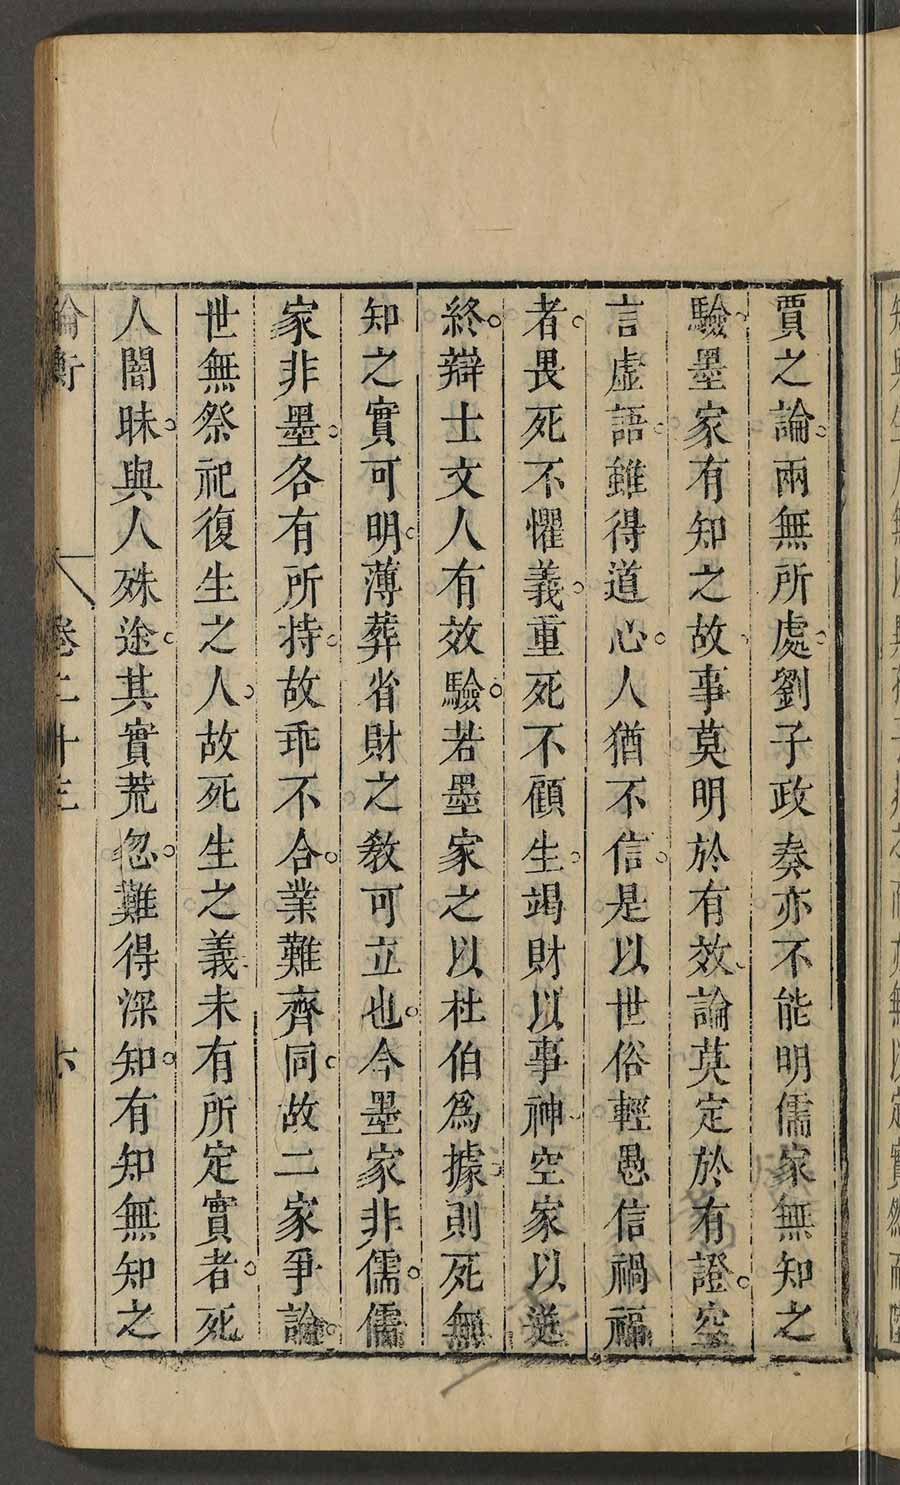 賈之論兩無所處劉子政奏亦不能明儒家無知之
驗墨家有知之故事莫明於有效論莫定於有證空
言虛語雖得道心人猶不信是以世俗輕愚信禍福
者畏死不懼義重死不顧生竭財以事神空家以送
終辯士文人有效驗若墨家之以杜伯爲據則死無
知之實可明薄葬省財之教可立也今墨家非儒儒
家非墨各有所持故乖不合業難齊同故二家爭論
世無祭祀復生之人故死生之義未有所定實者死
人闇昧與人殊途其實荒忽難得深知有知無知之
論衡 卷二十三 六